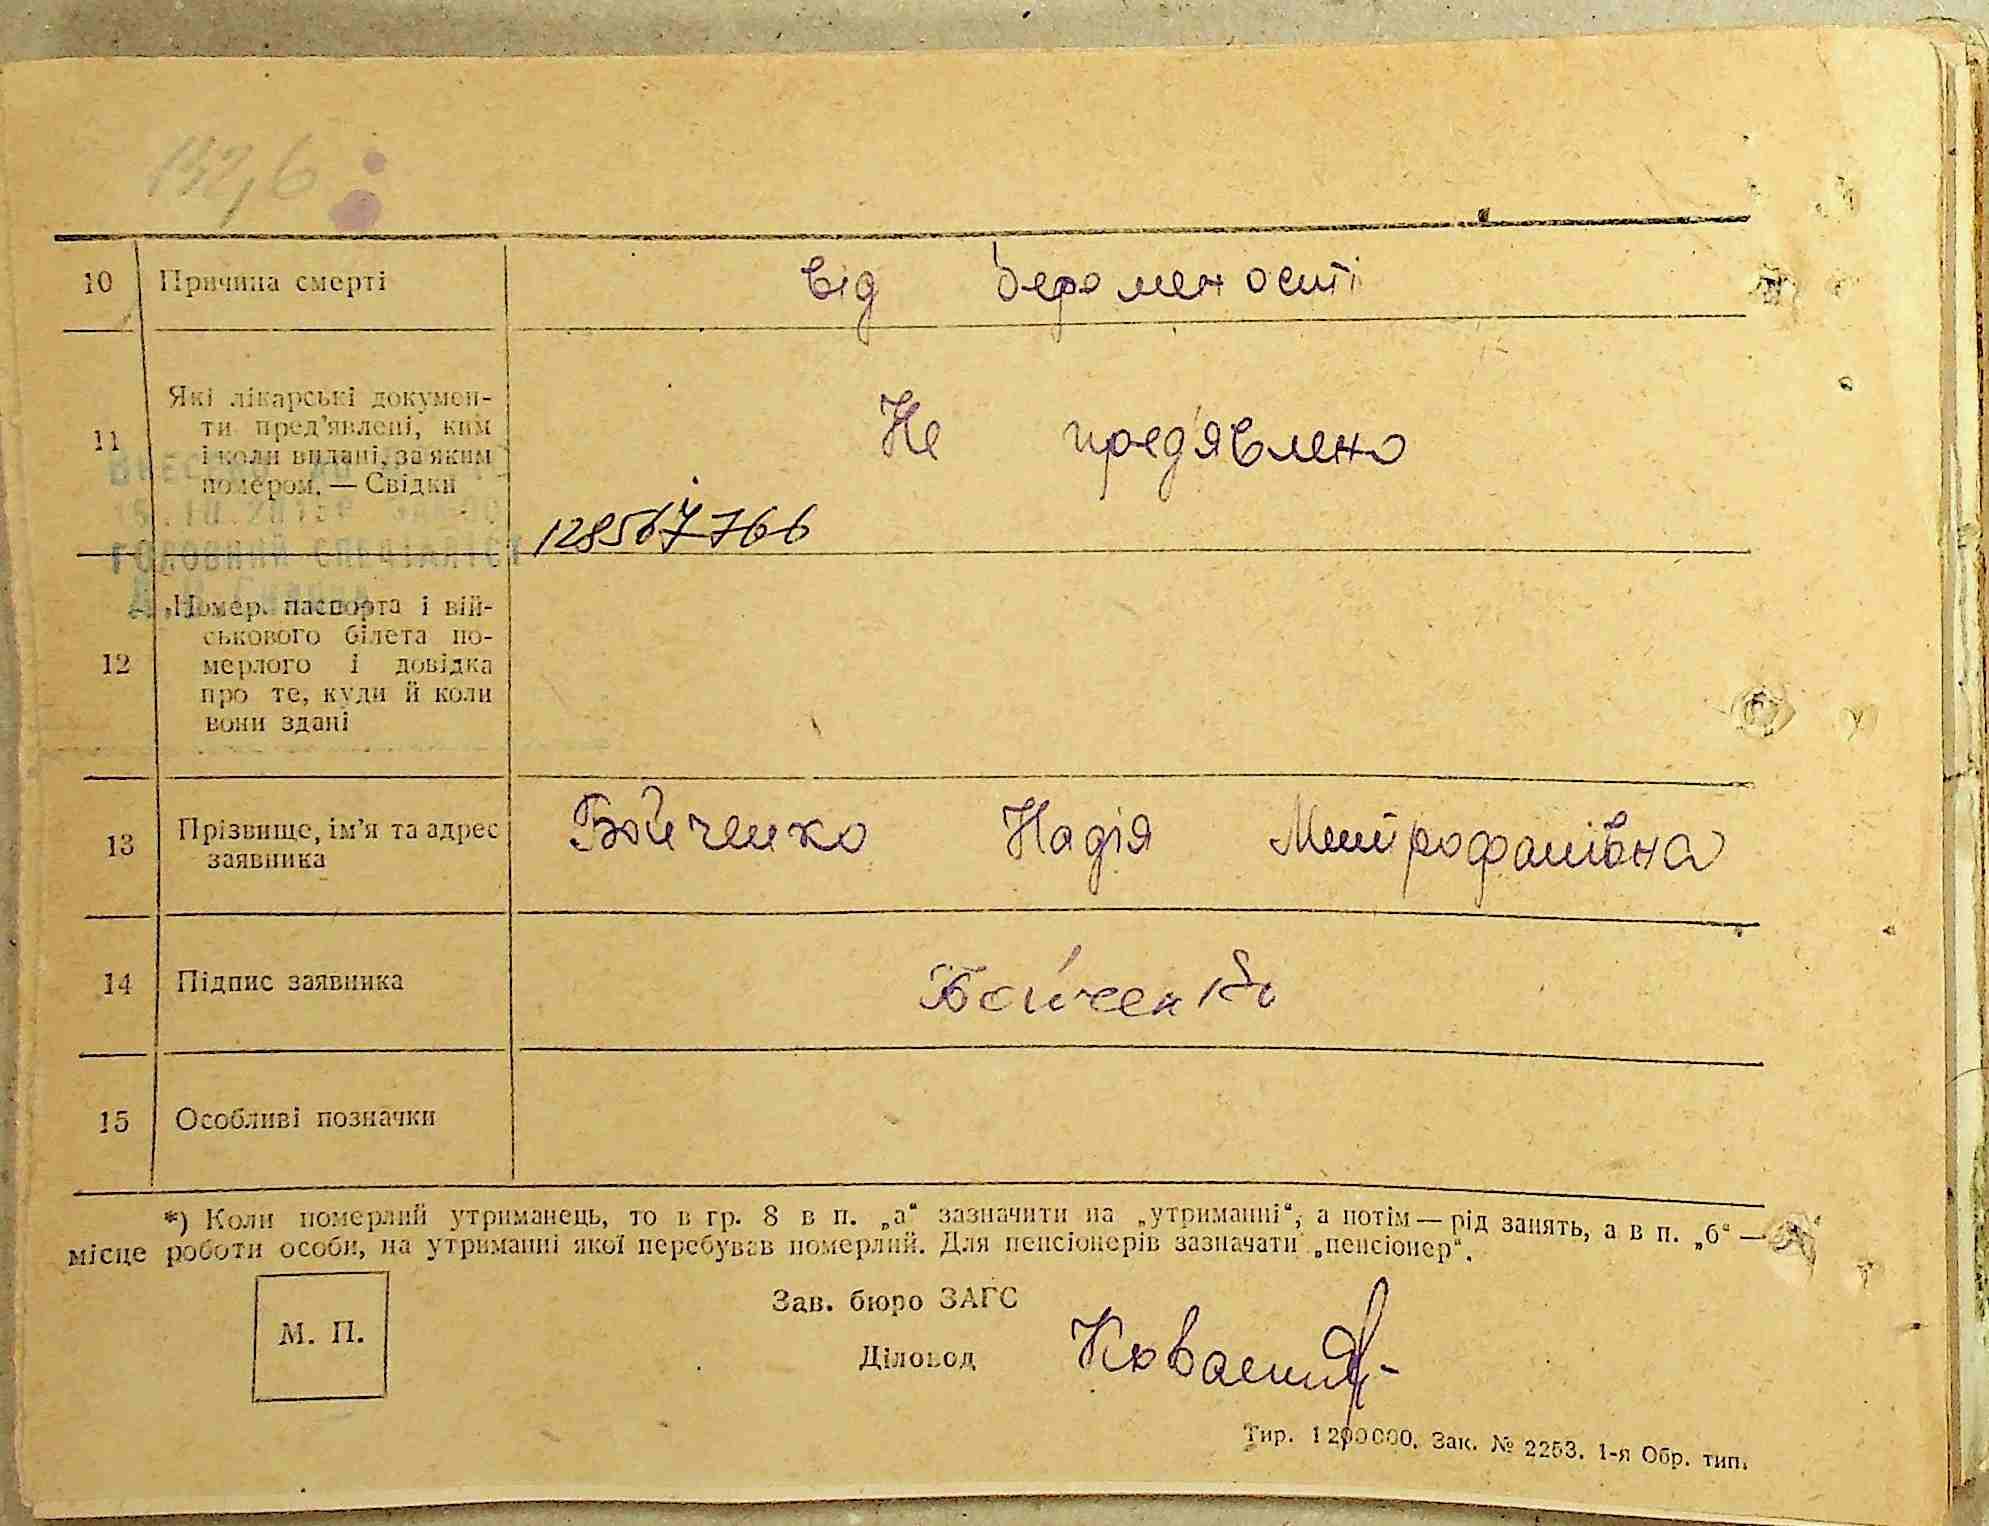 132,6
10 Причина смерті від беременості
11 Які лікарські докумен-
ти пред’явлені, ким
і коли видані, за яким
номером. — Свідки
Не пред'явлено
128567766
ГОЛОВНИЙ СПЕЦІАЛІСТ
12 Номер паспорта і вій-
ськового білета по-
мерлого і довідка
про те, куди й коли
вони здані
13 Прізвище, ім’я та адрес
заявника
Бойченко Надія Митрофанівна
14 Підпис заявника Бойченко
15 Особливі позначки
*) Коли померлий утриманець, то в гр. 8 в п. „а“ зазначити на „утриманні“, а потім — рід занять, а в п. „б“ —
місце роботи особи, на утриманні якої перебував померлий. Для пенсіонерів зазначати „пенсіонер“.
М. П.
Зав. бюро ЗАГС
Діловод
Тир. 1200000. Зак. № 2253. 1-я Обр. тип.